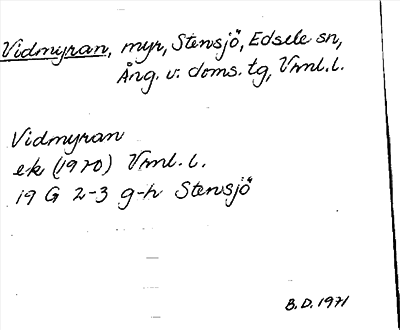 Vidmyran, myr, Stensjö, Edsele sn,
Ång. v. doms. tg, Vrml. l.
Vidmyran
ek (1970) Vrml. l.
19 G 2-3 g-h Stensjö
B.D. 1971